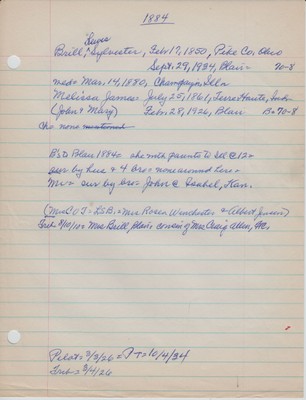 1884
Suses
Brill, Sylvester, Feb. 17, 1850, Pike Co, Ohio
Sept. 29, 1934, Blair = 70-8
md = Mar. 14, 1880, Champaign Ills
Melissa James = July 25, 1861, Terre Haute, Ind
(John & Mary) Feb. 28, 1926, Blair B = 70-8
Ch = none
B's to Blair 1884 = she with parents to Ill @ 12 =
sur by hus & 4 bros none around here =
Mr = sur by bro = John @ Isabel, Kan.
(Mrs C O J = LSB = Mrs Rosen Winchester & Albert Jensen)
Trib = 8/10/10 = Mrs Brill, Blair = cousin of Mrs. Craig Allen, AC =
Pilot = 3/3/26 = P T = 10/4/34
Trib = 3/4/26